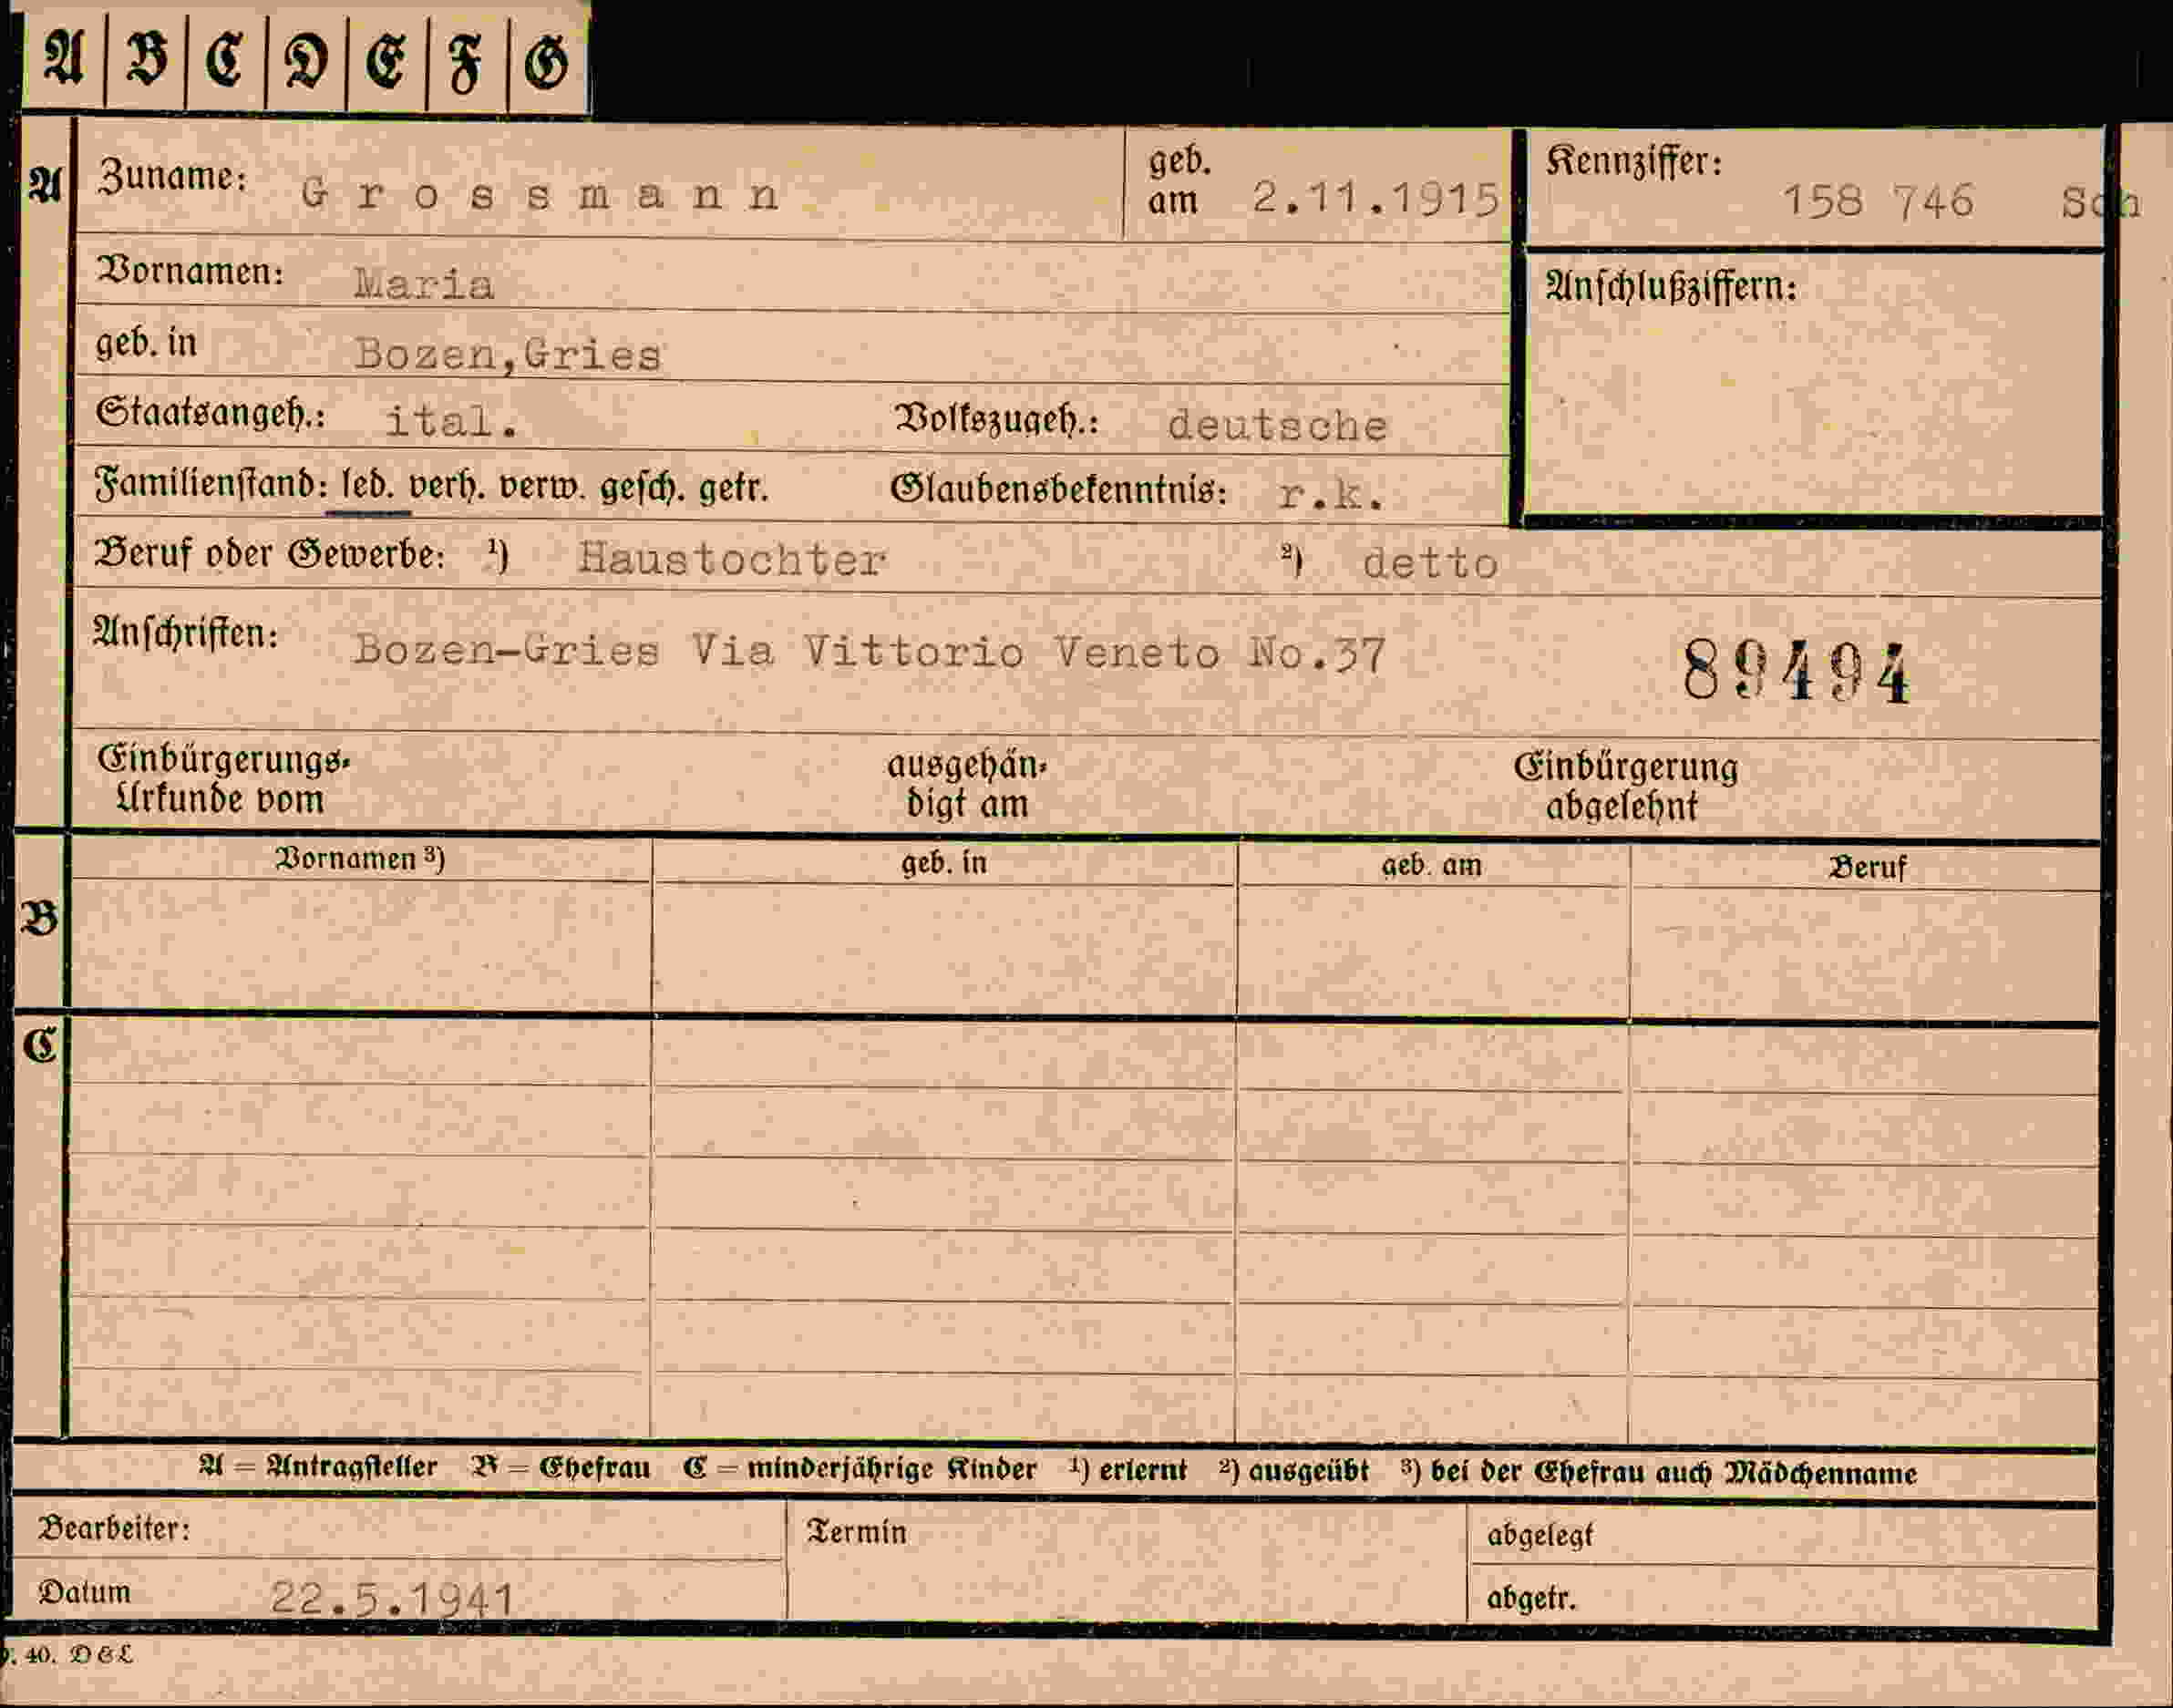 A B C D E F G
A Zuname: Grossmann geb. am 2.11.1915 Kennziffer: 158 746 Sch
Vornamen: Maria Anschlußziffern:
geb. in Bozen,Gries
Staatsangeh.: ital. Volkszugeh.: deutsche
Familienstand: led. verh. verw. gesch. getr. Glaubensbekenntnis: r.k.
Beruf oder Gewerbe: ¹) Haustochter ²) detto
Anschriften: Bozen-Gries Via Vittorio Veneto No.37 89494
Einbürgerungs- ausgehän- Einbürgerung
Urkunde vom digt am abgelehnt
Vornamen ³) geb. in geb. am Beruf
B
C
A = Antragsteller B = Ehefrau C = minderjährige Kinder ¹) erlernt ²) ausgeübt ³) bei der Ehefrau auch Mädchenname
Bearbeiter: Termin abgelegt
Datum 22.5.1941 abgetr.
40. D&L